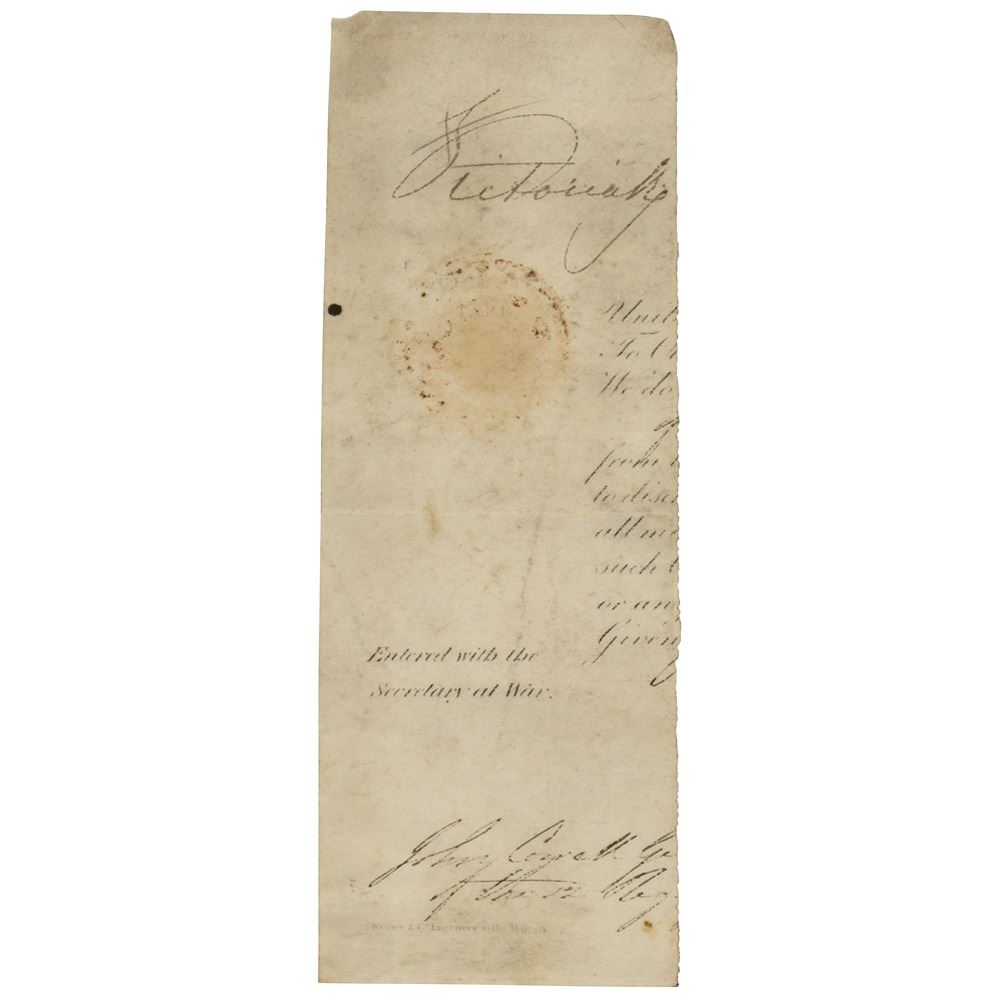 Victoria R
Unit
To
We do
from
to disc
all m
such
or an
Given
Entered with the
Secretary at War.
John Cowell Ge
of the 12 Reg
Engravers to Her Majesty